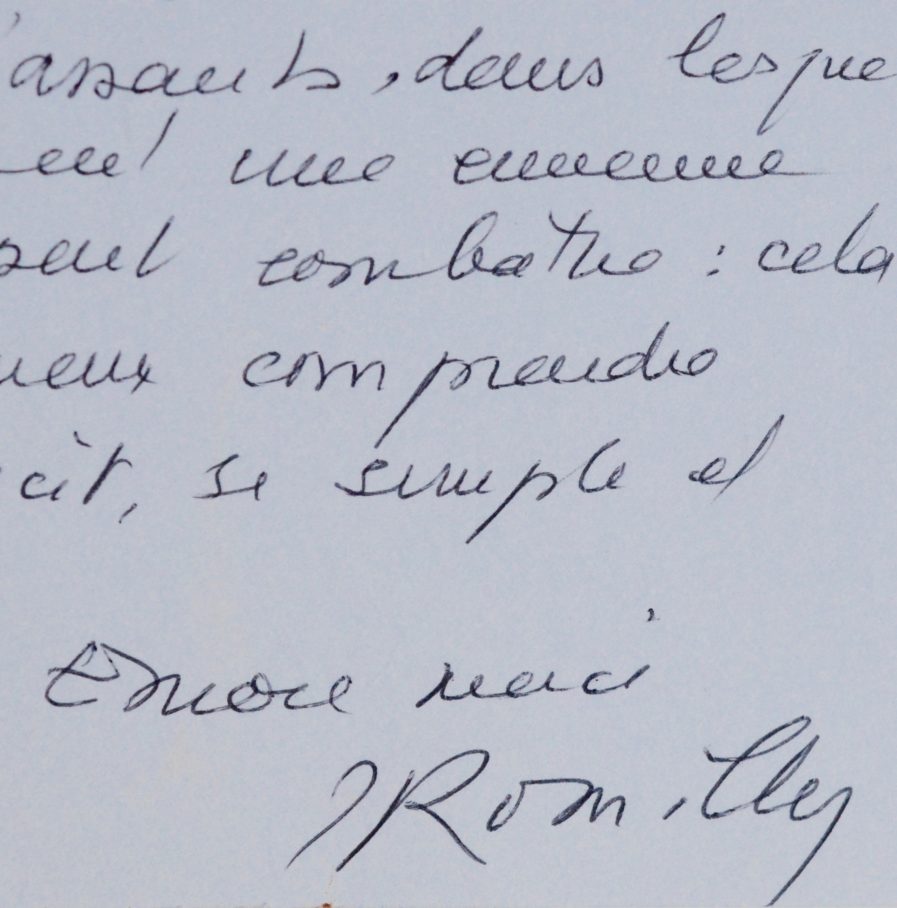 assauts, dans lesque
ent une ennemie
sent combattre : cela
mieux comprendre
cit, si simple et
Encore merci
JRomilly